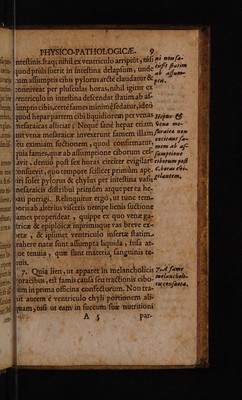 PHYSICO-PATHOLOGICÆ. 9
intestinis.staq; nihil ex ventriculo arripiût, nisi
quod priùs fuerit in intestina delapsum, unde
cum assumptis cibis pylorus arctè claudatur &
conniveat per plusculas horas, nihil igitur ex
ventriculo in intestina descendat statim ab as-
sumptis cibis, certè fames minimè sedatur, ideo
quod hepar partem cibi liquidiorem per venas
mesaraicas alliciat; Neque sanè hepar etiam
aut venæ mesaraicæ inverterunt famem ullam
seu eximiam suctionem, quod confirmatur,
quia fames, quæ ab assumptione ciborum ces-
savit, denuò post sex horas citeriter evigilare
consuevit, quo tempore scilicet primùm ape-
riri solet pylorus & chylus per intestina vasis
mesaraicis distribui primùm atque per ea he-
pati porrigi. Relinquitur ergò, ut tunc tem-
poris ab alterius visceris nempe lienis suctione
fames propendeat, quippe ex quo venæ ga-
stricæ & epiploicæ inprimisque vas breve ex-
ortæ, & ipsimet ventriculo insertæ statim
trahere natæ sunt assumpta liquida, fusa at-
que tenuia, quæ sunt materia sanguinis te-
nuis.
7. Quia lien, ut apparet in melancholicis
voracibus, est famis causa seu tractionis cibo-
rum in prima officina confectorum. Non tra-
hit autem è ventriculo chyli portionem ali-
quam, nisi ut eam in succum suæ nutritioni
A 5 par-
statim
ab assum-
ptis.
Hepar &
venæ me-
saraicæ non
excitant fa-
mem ab as-
sumptione
ciborum post
6. horas evi-
gilantem,
7. A fame
melancholi-